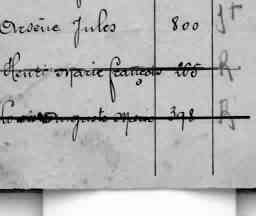 Arsène Jules 800 J+
Henri Marie François 265 R
Auguste Marie 398 R